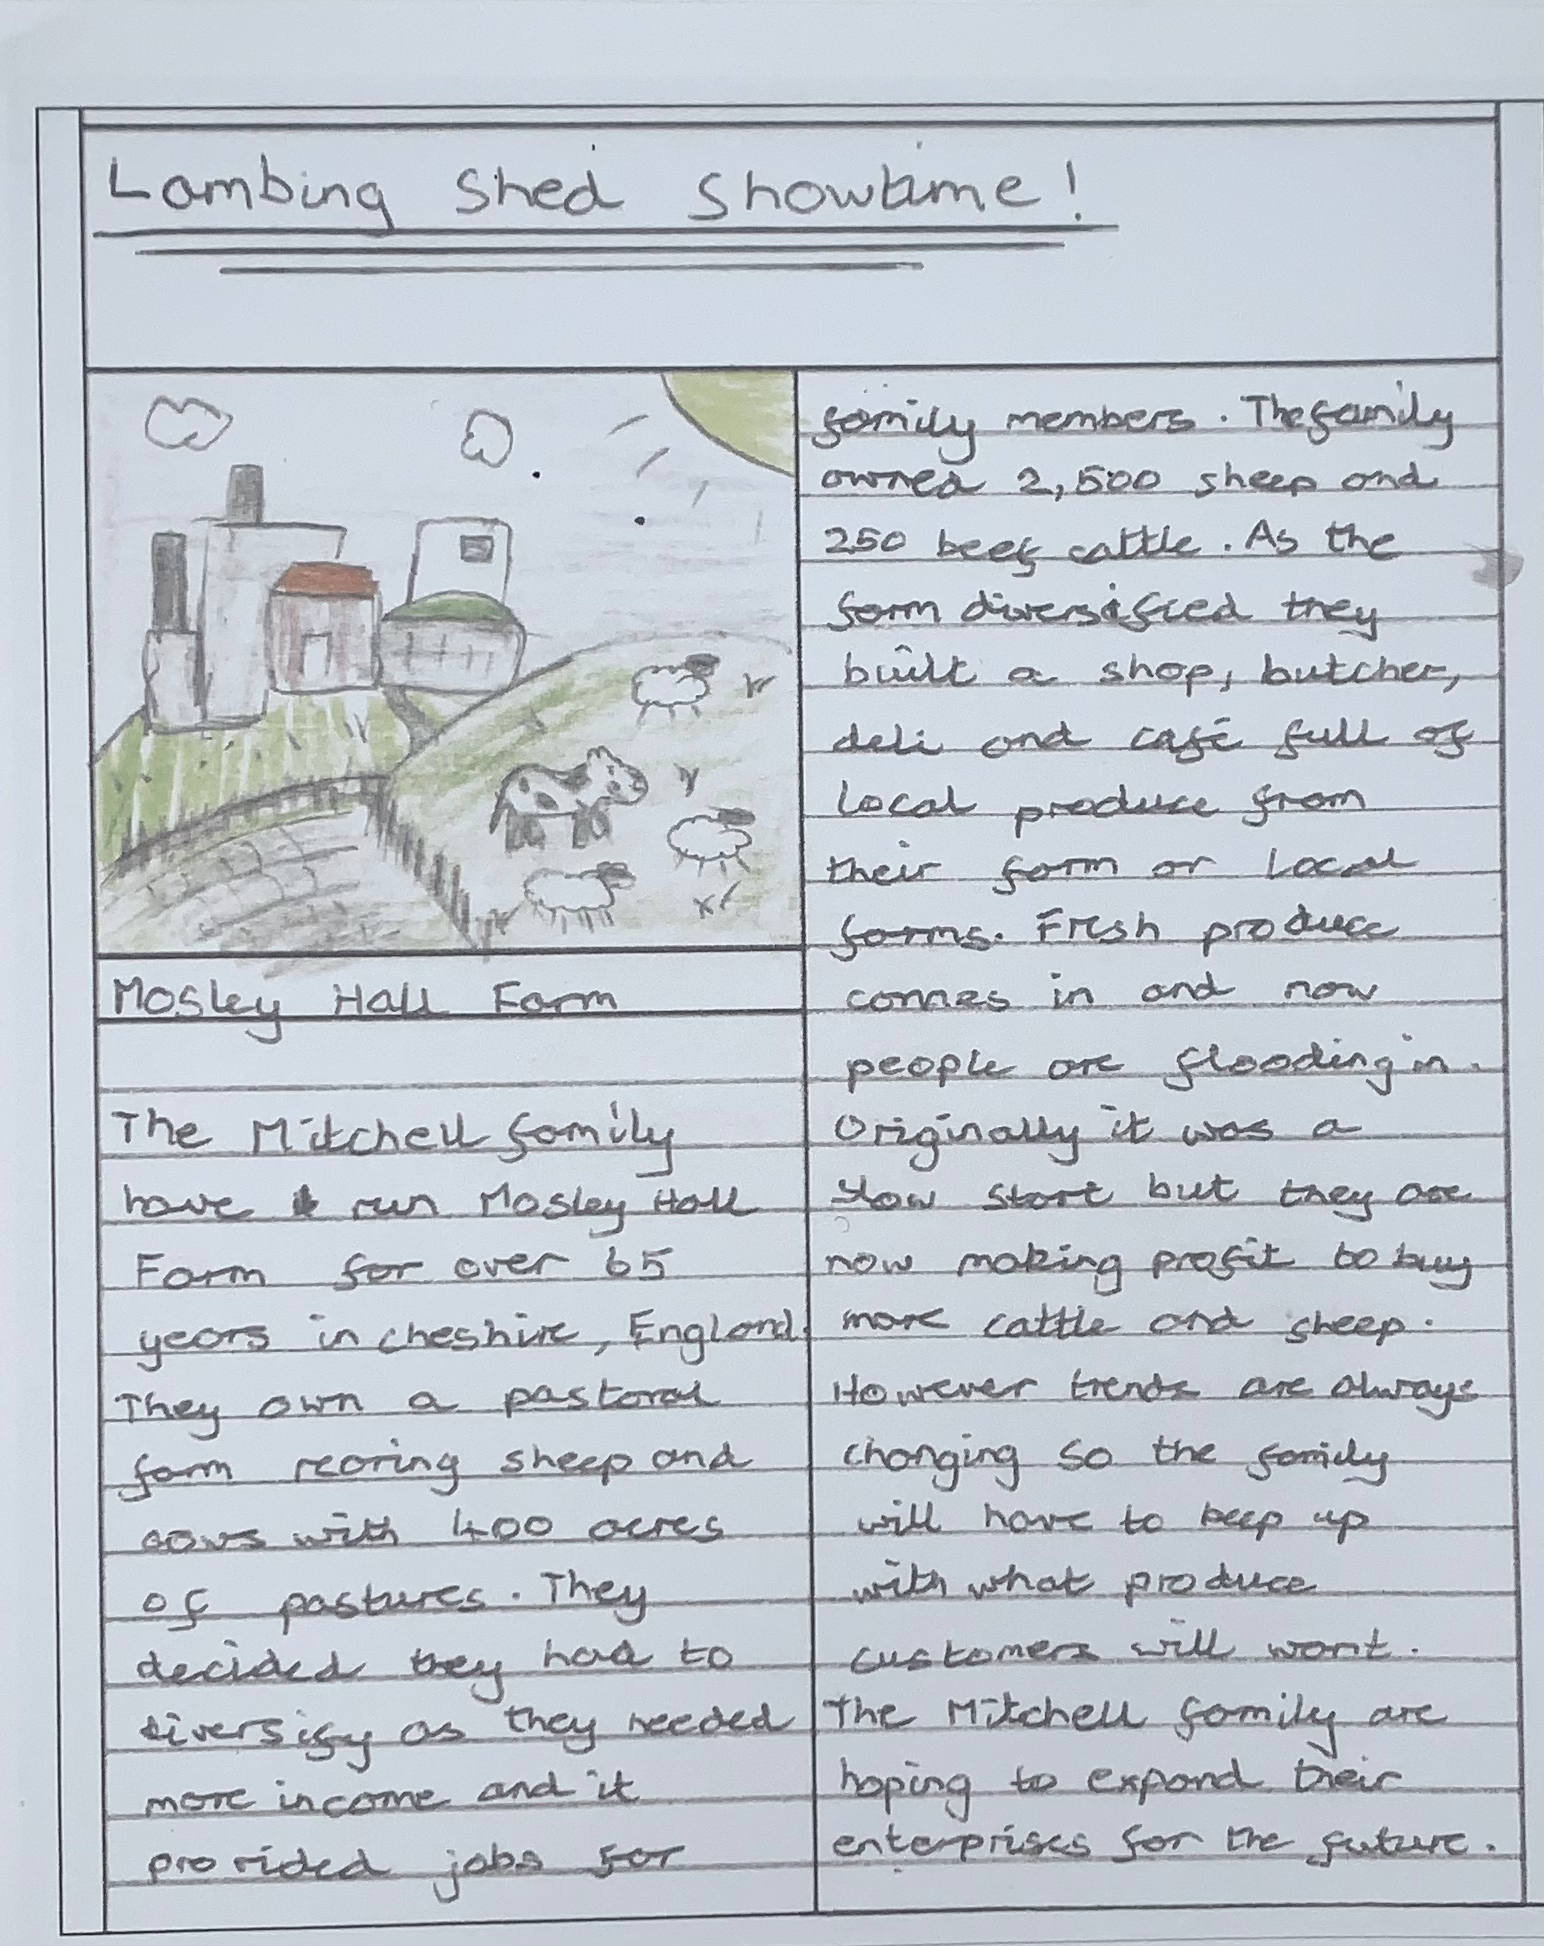 Lambing Shed Showtime!
Mosley Hall Farm
The Mitchell family
have run Mosley Hall
Farm for over 65
years in cheshire, England.
They own a pastoral
farm rearing sheep and
cows with 400 acres
of pastures. They
decided they had to
diversify as they needed
more income and it
provided jobs for
family members. The family
owned 2,500 sheep and
250 beef cattle. As the
farm diversified they
built a shop, butcher,
deli and café full of
local produce from
their farm or local
farms. Fresh produce
comes in and now
people are flooding in.
Originally it was a
slow start but they are
now making profit to buy
more cattle and sheep.
However trends are always
changing so the family
will have to keep up
with what produce
customers will want.
The Mitchell family are
hoping to expand their
enterprises for the future.